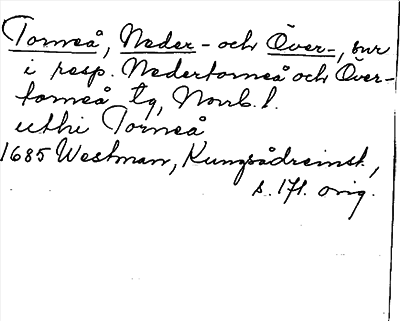 Torneå, Neder- och Över-, snr
i resp. Nedertorneå och Över-
torneå tg, Norrb. l.
uthi Torneå
1685 Westman, Kungsådreinst.,
s. 171. orig.